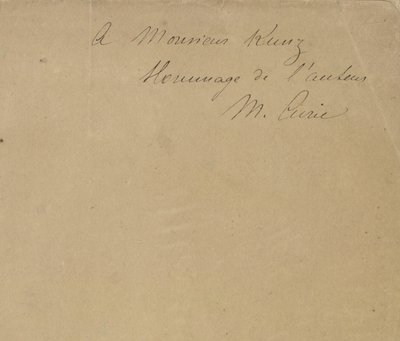 A Monsieur Kunz
Hommage de l'auteur
M. Curie